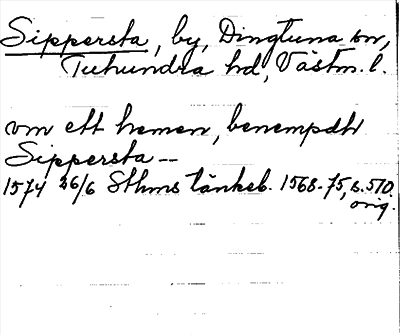 Sippersta, by, Dingtuna sn,
Tuhundra hd, Västm. l.
om ett hemen, benempdh
Sippersta --
1574 26/6 Sthms tänkeb. 1568-75, s. 510.
orig.